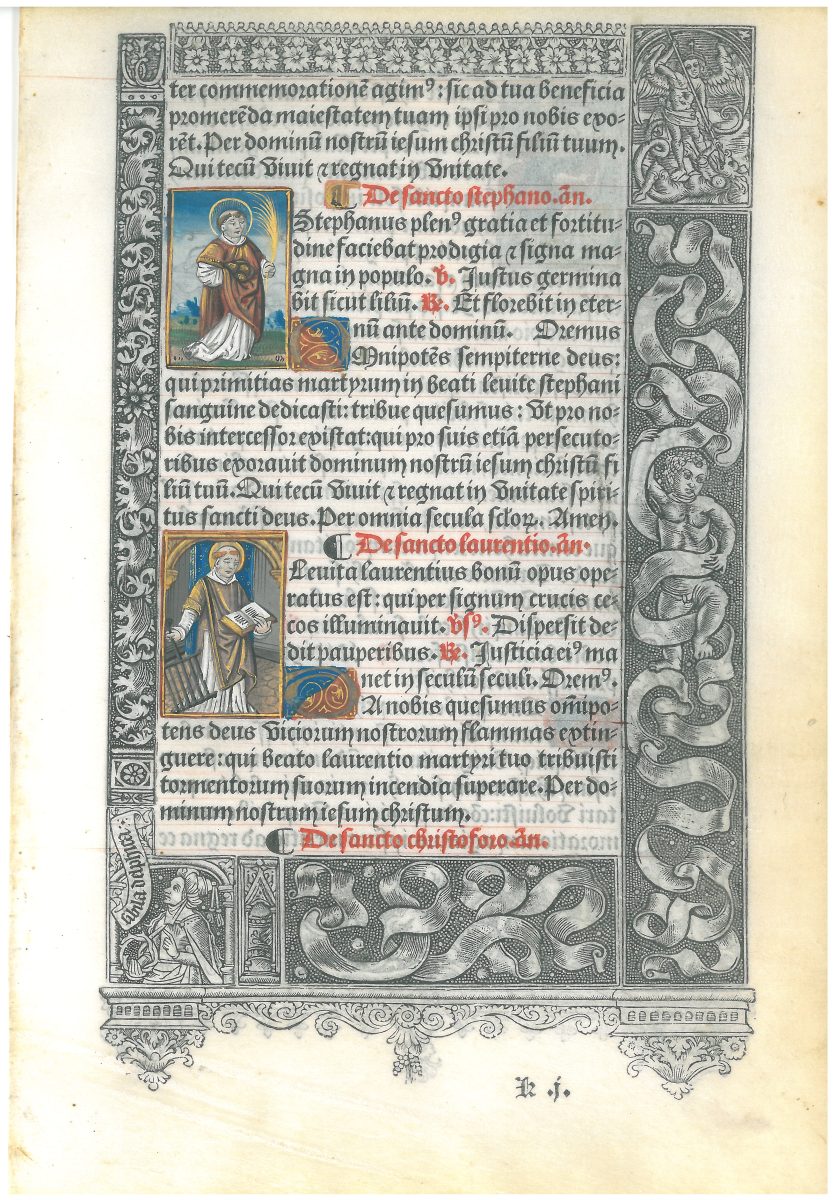 ter commemorationē agimꝰ: sic ad tua beneficia
promerēda maiestatem tuam ipsi pro nobis exo-
rēt. Per dominū nostrū iesum christū filiū tuum.
Qui tecū viuit ⁊ regnat in vnitate.
De sancto stephano. añ.
Stephanus plenꝰ gratia et fortitu-
dine faciebat prodigia ⁊ signa ma
gna in populo. ꝟ. Justus germina
bit sicut liliū. ℟. Et florebit in eter-
nū ante dominū. Oremus
Mnipotēs sempiterne deus:
qui primitias martyrum in beati leuite stephani
sanguine dedicasti: tribue quesumus: vt pro no-
bis intercessor existat: qui pro suis etiā persecuto-
ribus exorauit dominum nostrū iesum christū fi
liū tuū. Qui tecū viuit ⁊ regnat in vnitate spiri-
tus sancti deus. Per omnia secula sclorꝝ. Amen.
De sancto laurentio. añ.
Leuita laurentius bonū opus ope-
ratus est: qui per signum crucis ce-
cos illuminauit. ꝟsꝰ. Dispersit de-
dit pauperibus. ℟. Justicia eiꝰ ma
net in seculū seculi. Oremꝰ.
A nobis quesumus om̄ipo-
tens deus viciorum nostrorum flammas extin-
guere: qui beato laurentio martyri tuo tribuisti
tormentorum suorum incendia superare. Per do-
minum nostrum iesum christum.
De sancto christoforo. añ.
sibila delphica
k .j.